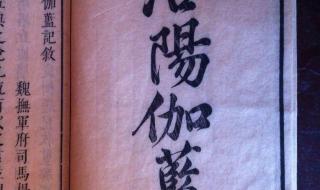 洛陽伽藍
伽藍記敘
魏撫軍府司馬楊